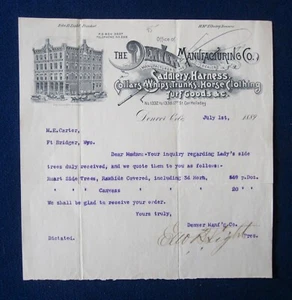 Office of
THE Denver Manufacturing Co.
Saddlery, Harness,
Collars, Whips, Trunks, Horse Clothing
Turf Goods &c.
Denver, Colo. July 1st, 1889
M.E. Carter,
Ft Bridger, Wyo.
Dear Madam:-Your inquiry regarding Lady's side
trees duly received, and we quote them to you as follows:-
Ruart Side Trees, Rawhide Covered, including 3d Horn, per Doz.
Canvass
We shall be glad to receive your order.
Yours truly,
Denver Manf'g Co.
Dictated.